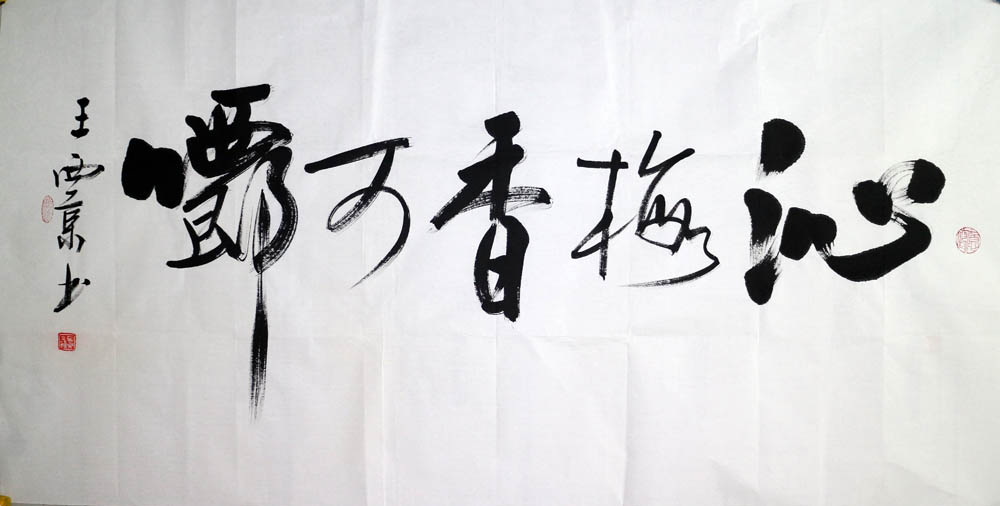 沁梅香可嚼
王西京书